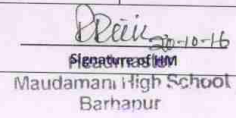 20-10-16
Signature of HM
Headmaster
Maudamani High School
Barhapur